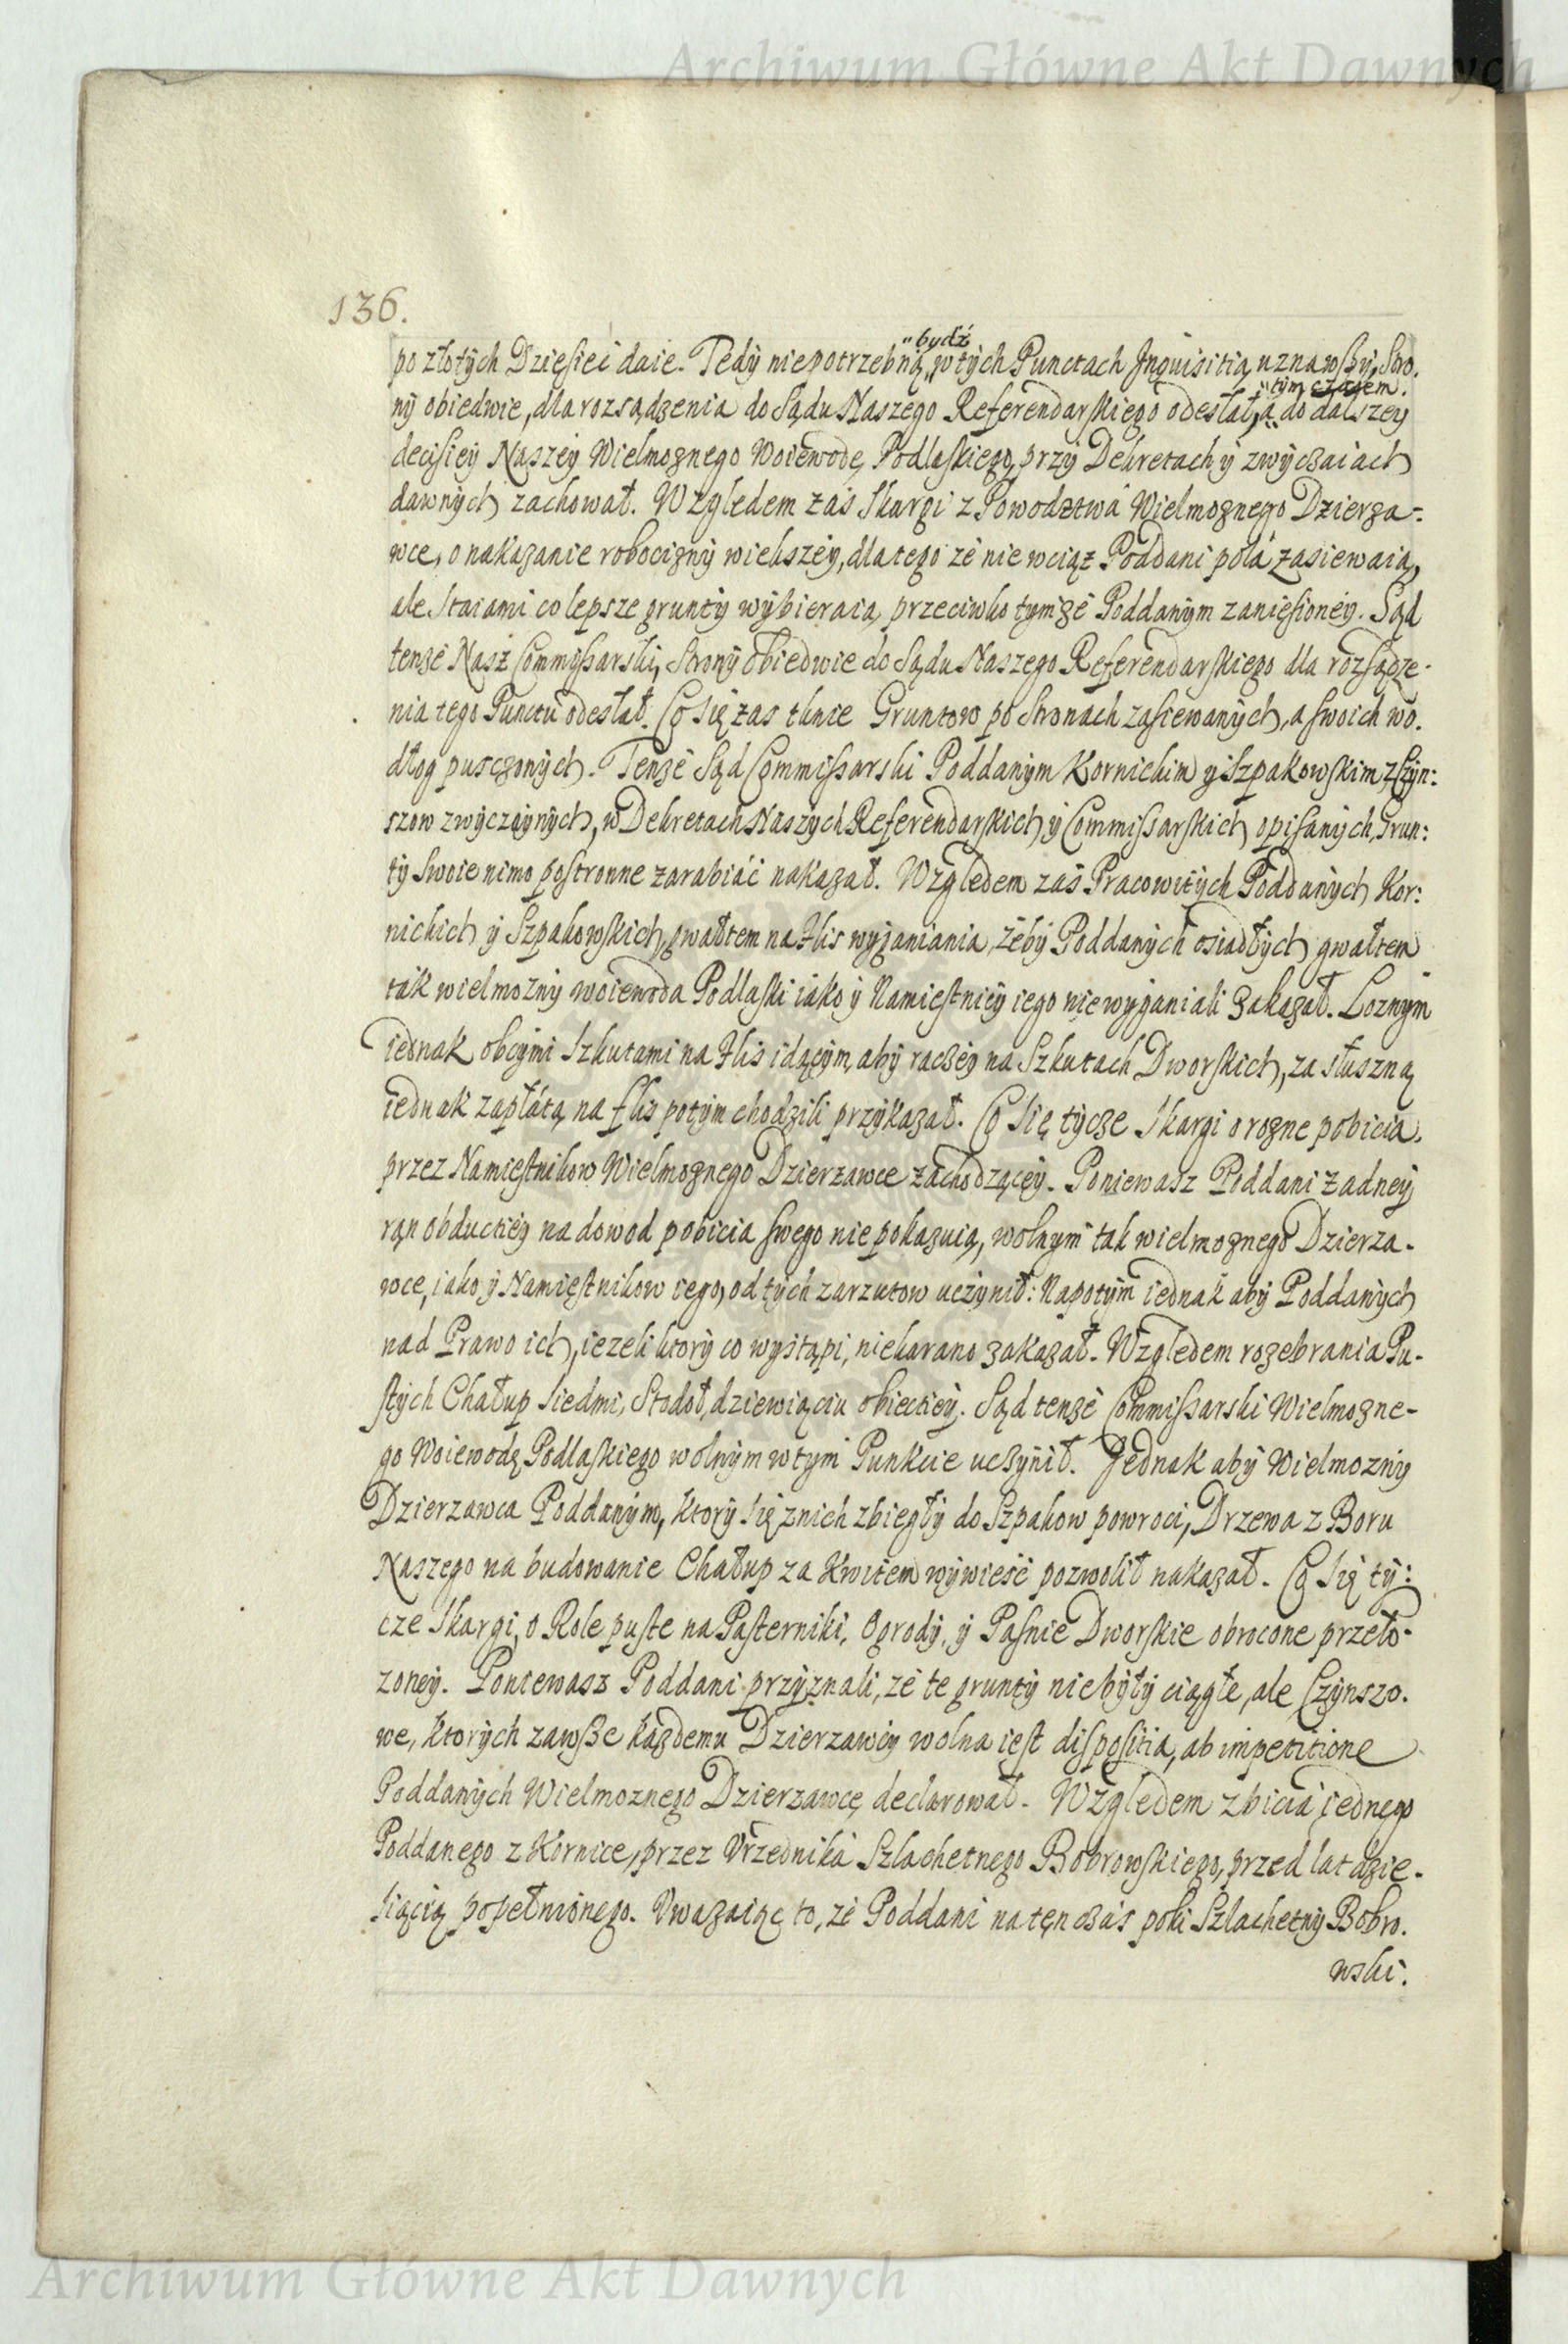 Archiwum Główne Akt Dawnych
136.
po złotych Dziesieć daie. Tedy niepotrzebną "będź w tych Punctach Inquisitią uznawszy, Stro.
ny obiedwie, dla rozsądzenia do Sądu Naszego Referendarskiego odesłał, a "tym czasem. do dalszey
decisiey Naszey Wielmoznego Woiewodę Podlaskiego, przy Dekretach y zwyczaiach
dawnych zachował. Względem zaś Skargi z Powodztwa Wielmoznego Dzierza-:
wce, o nakazanie robocizny wiekszey, dla tego ze nie wciąż Poddani pola zasiewaią,
ale Staiami co lepsze grunty wybieraią, przeciwko tymze Poddanym zaniesioney. Sąd
tenze Nasz Commissarski, Strony obiedwie do Sądu Naszego Referendarskiego dla rozsądze-
nia tego Punctu odesłał. Co się zas tknie Gruntow po Stronach zasiewanych, a swoich wo.
dłog pusczonych. Tenze Sąd Commissarski Poddanym Kornickim y Szpakowskim z Czyn:
szow zwyczaynych, w Dekretach Naszych Referendarskich, y Commissarskich opisanych, Grun:
ty swoie nimo postronne zarabiać nakazał. Względem zaś Pracowitych Poddanych Kor:
nickich y Szpakowskich, gwałtem na Flis wyganiania, żeby Poddanych osiadłych gwałtem
tak wielmozny woiewoda Podlaski iako y Namiestnicy iego nie wyganiali zakazał. Loznym
iednak obcymi Szkutami na Flis idącym, aby raczey na Szkutach Dworskich, za słuszną
iednak zapłatą na flis potym chodzili przykazał. Co się tycze Skargi o rozne pobicia,
przez Namiestnikow Wielmoznego Dzierzawce zachodzącey. Poniewasz Poddani zadney
ran obductiey na dowod pobicia swego nie pokazuią, wolnym tak wielmoznego Dzierza-
wce, iako y Namiestnikow iego, od tych zarzutow uczynił: Napotym iednak aby Poddanych
nad Prawo ich, iezeli ktory co wystąpi, niekarano zakazał. Względem rozebrania Pu-
stych Chałup siedmi, Stodoł, dziewiąciu obiectiey. Sąd tenze Commissarski Wielmozne-
go Woiewodę Podlaskiego wolnym w tym Punkcie uczynił. Jednak aby Wielmozny
Dzierzawca Poddanym, ktory się z nich zbiegły do Szpakow powroci, Drzewa z Boru
Naszego na budowanie Chałup za Kwitem wywieść pozwolił nakazał. Co się ty:
cze Skargi, o Role puste na Pasterniki, Ogrody, y Pasnie Dworskie obrocone przeło-
zoney. Poniewasz Poddani przyznali, ze te grunty niebyły ciągłe, ale Czynszo.
we, ktorych zawsze kazdemu Dzierzawcy wolna iest dispositia, ab impetitione
Poddanych Wielmoznego Dzierzawcę declarował. Względem zbicia iednego
Poddanego z Kornice, przez Urzednika Szlachetnego Bobrowskiego, przed lat dzie-
siącią popełnionego. Uwazaiąc to, ze Poddani na ten czas poki Szlachetny Bobro.
wski.
Archiwum Główne Akt Dawnych